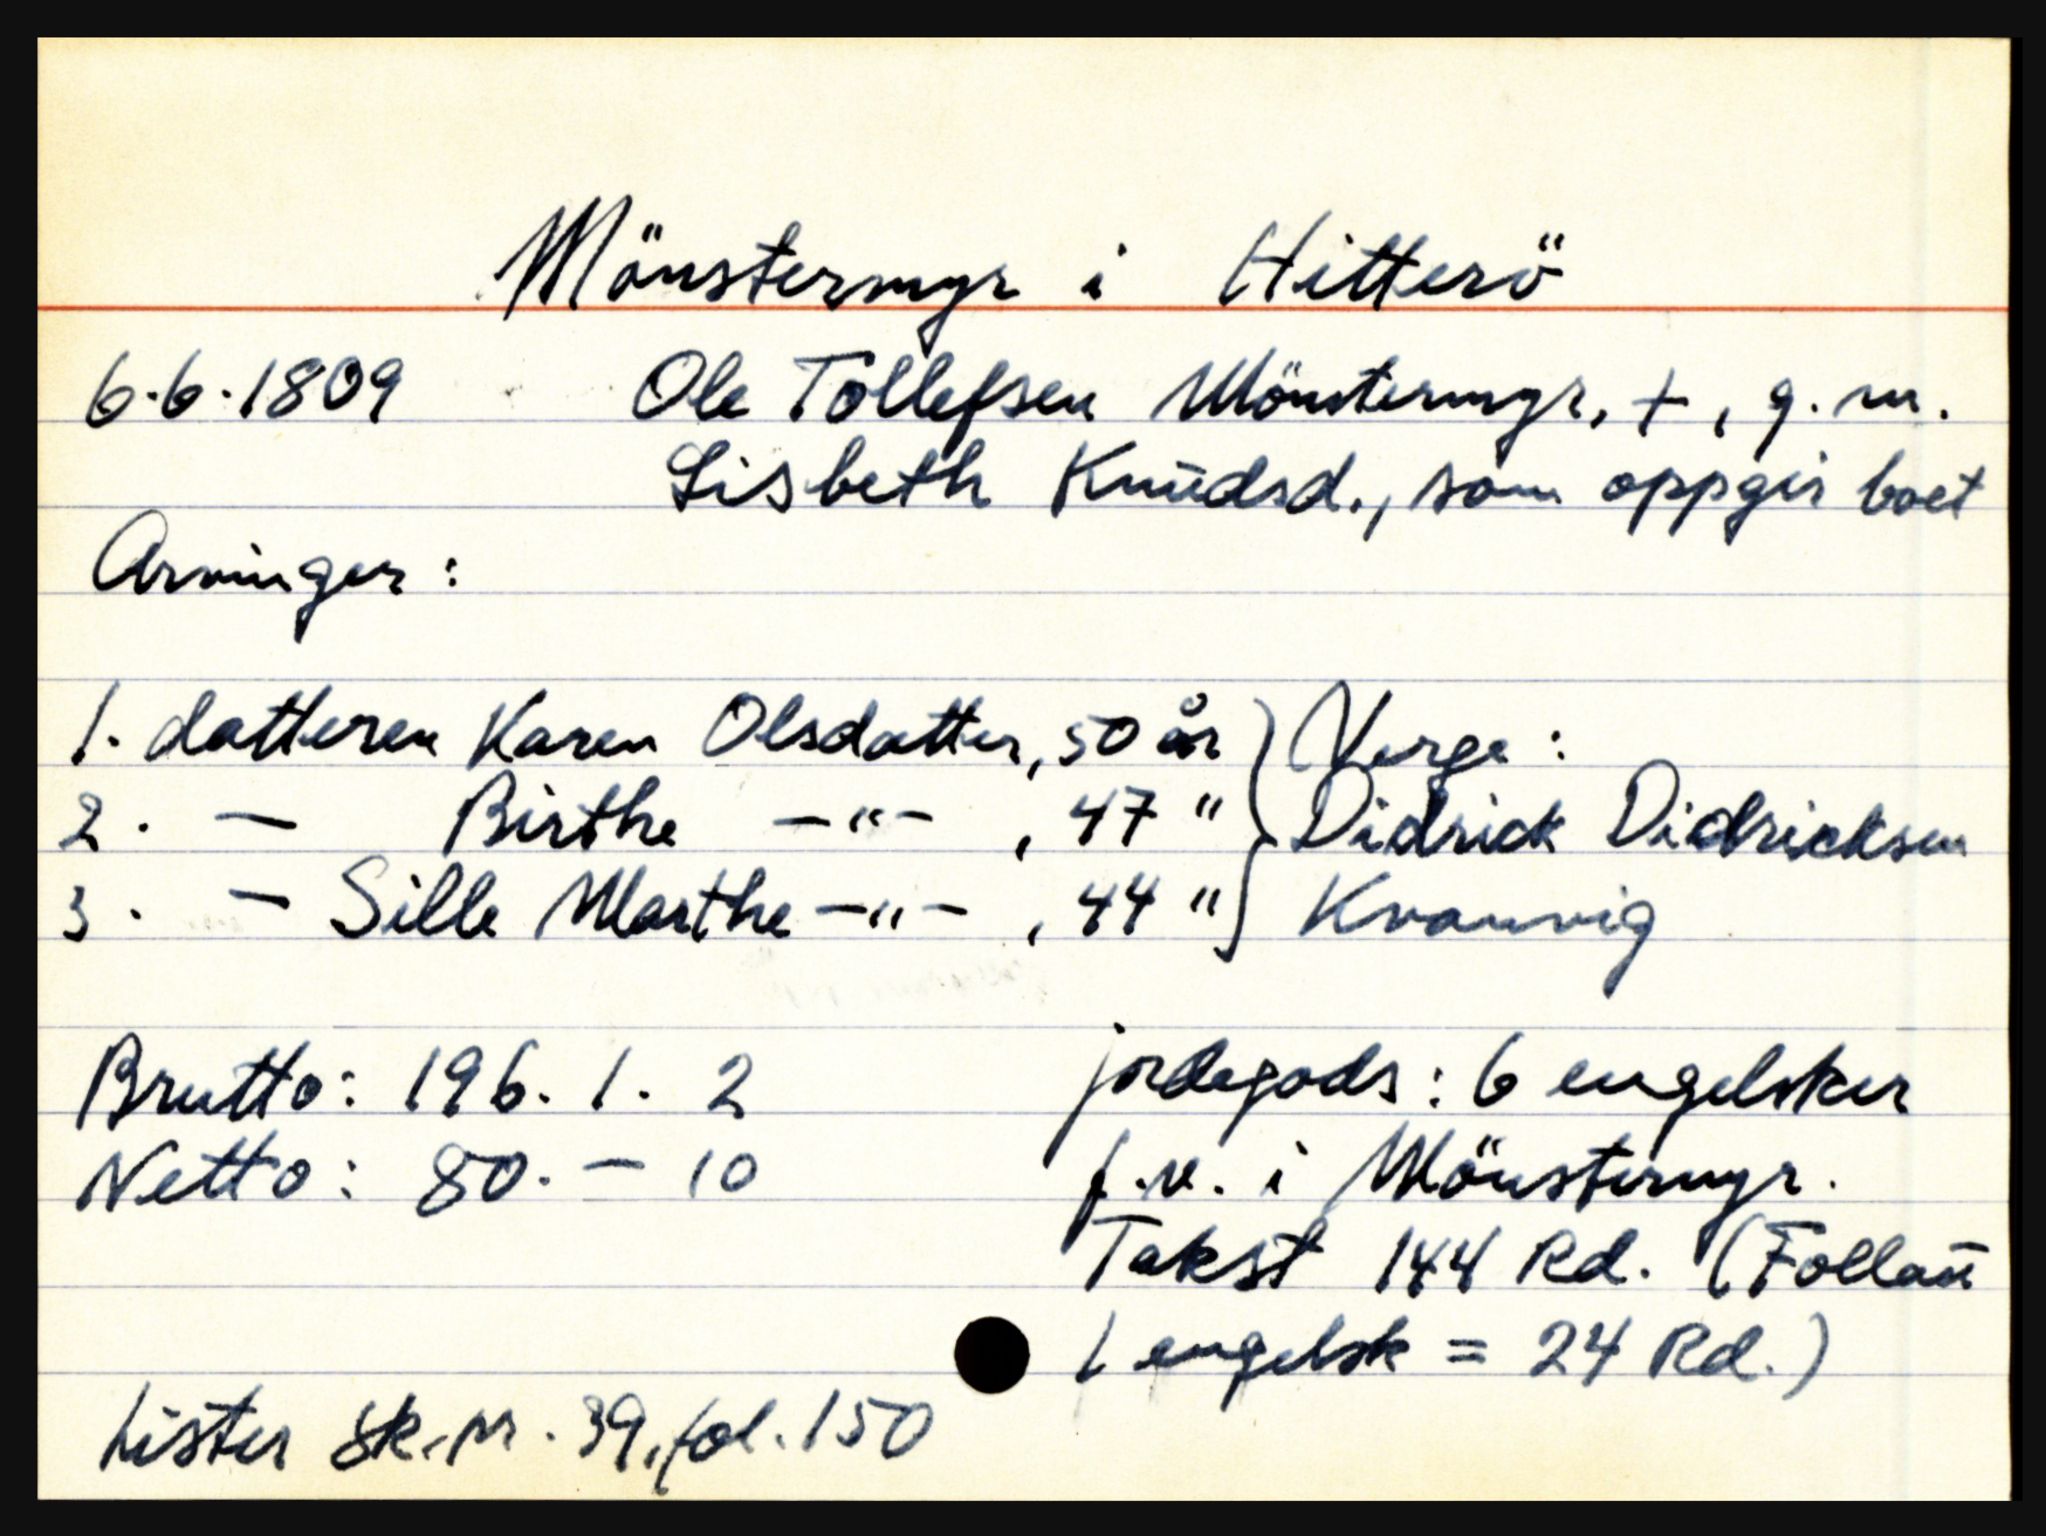 Mönstermyr i Hitterö
6.6.1809 Ole Tollefsen Mönstermyr, +, g.m.
Lisbeth Knudsd., som oppgir boet
Arvinger:
1. datteren Karen Olsdatter, 50 år } Verge:
2. — Birthe —"— , 47 " } Didrick Didricksen
3. — Sille Marthe —"— , 44 " } Kvanvig
Brutto: 196. 1. 2 jordegods: 6 engelsker
Netto: 80. — 10 f.v. i Mönstermyr.
Takst 144 Rd. (Follaŭ
1 engelsk = 24 Rd.)
Lister sk.nr. 39, fol. 150